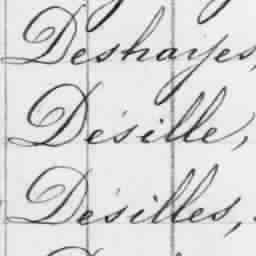 Deshayes,
Désille,
Désilles,